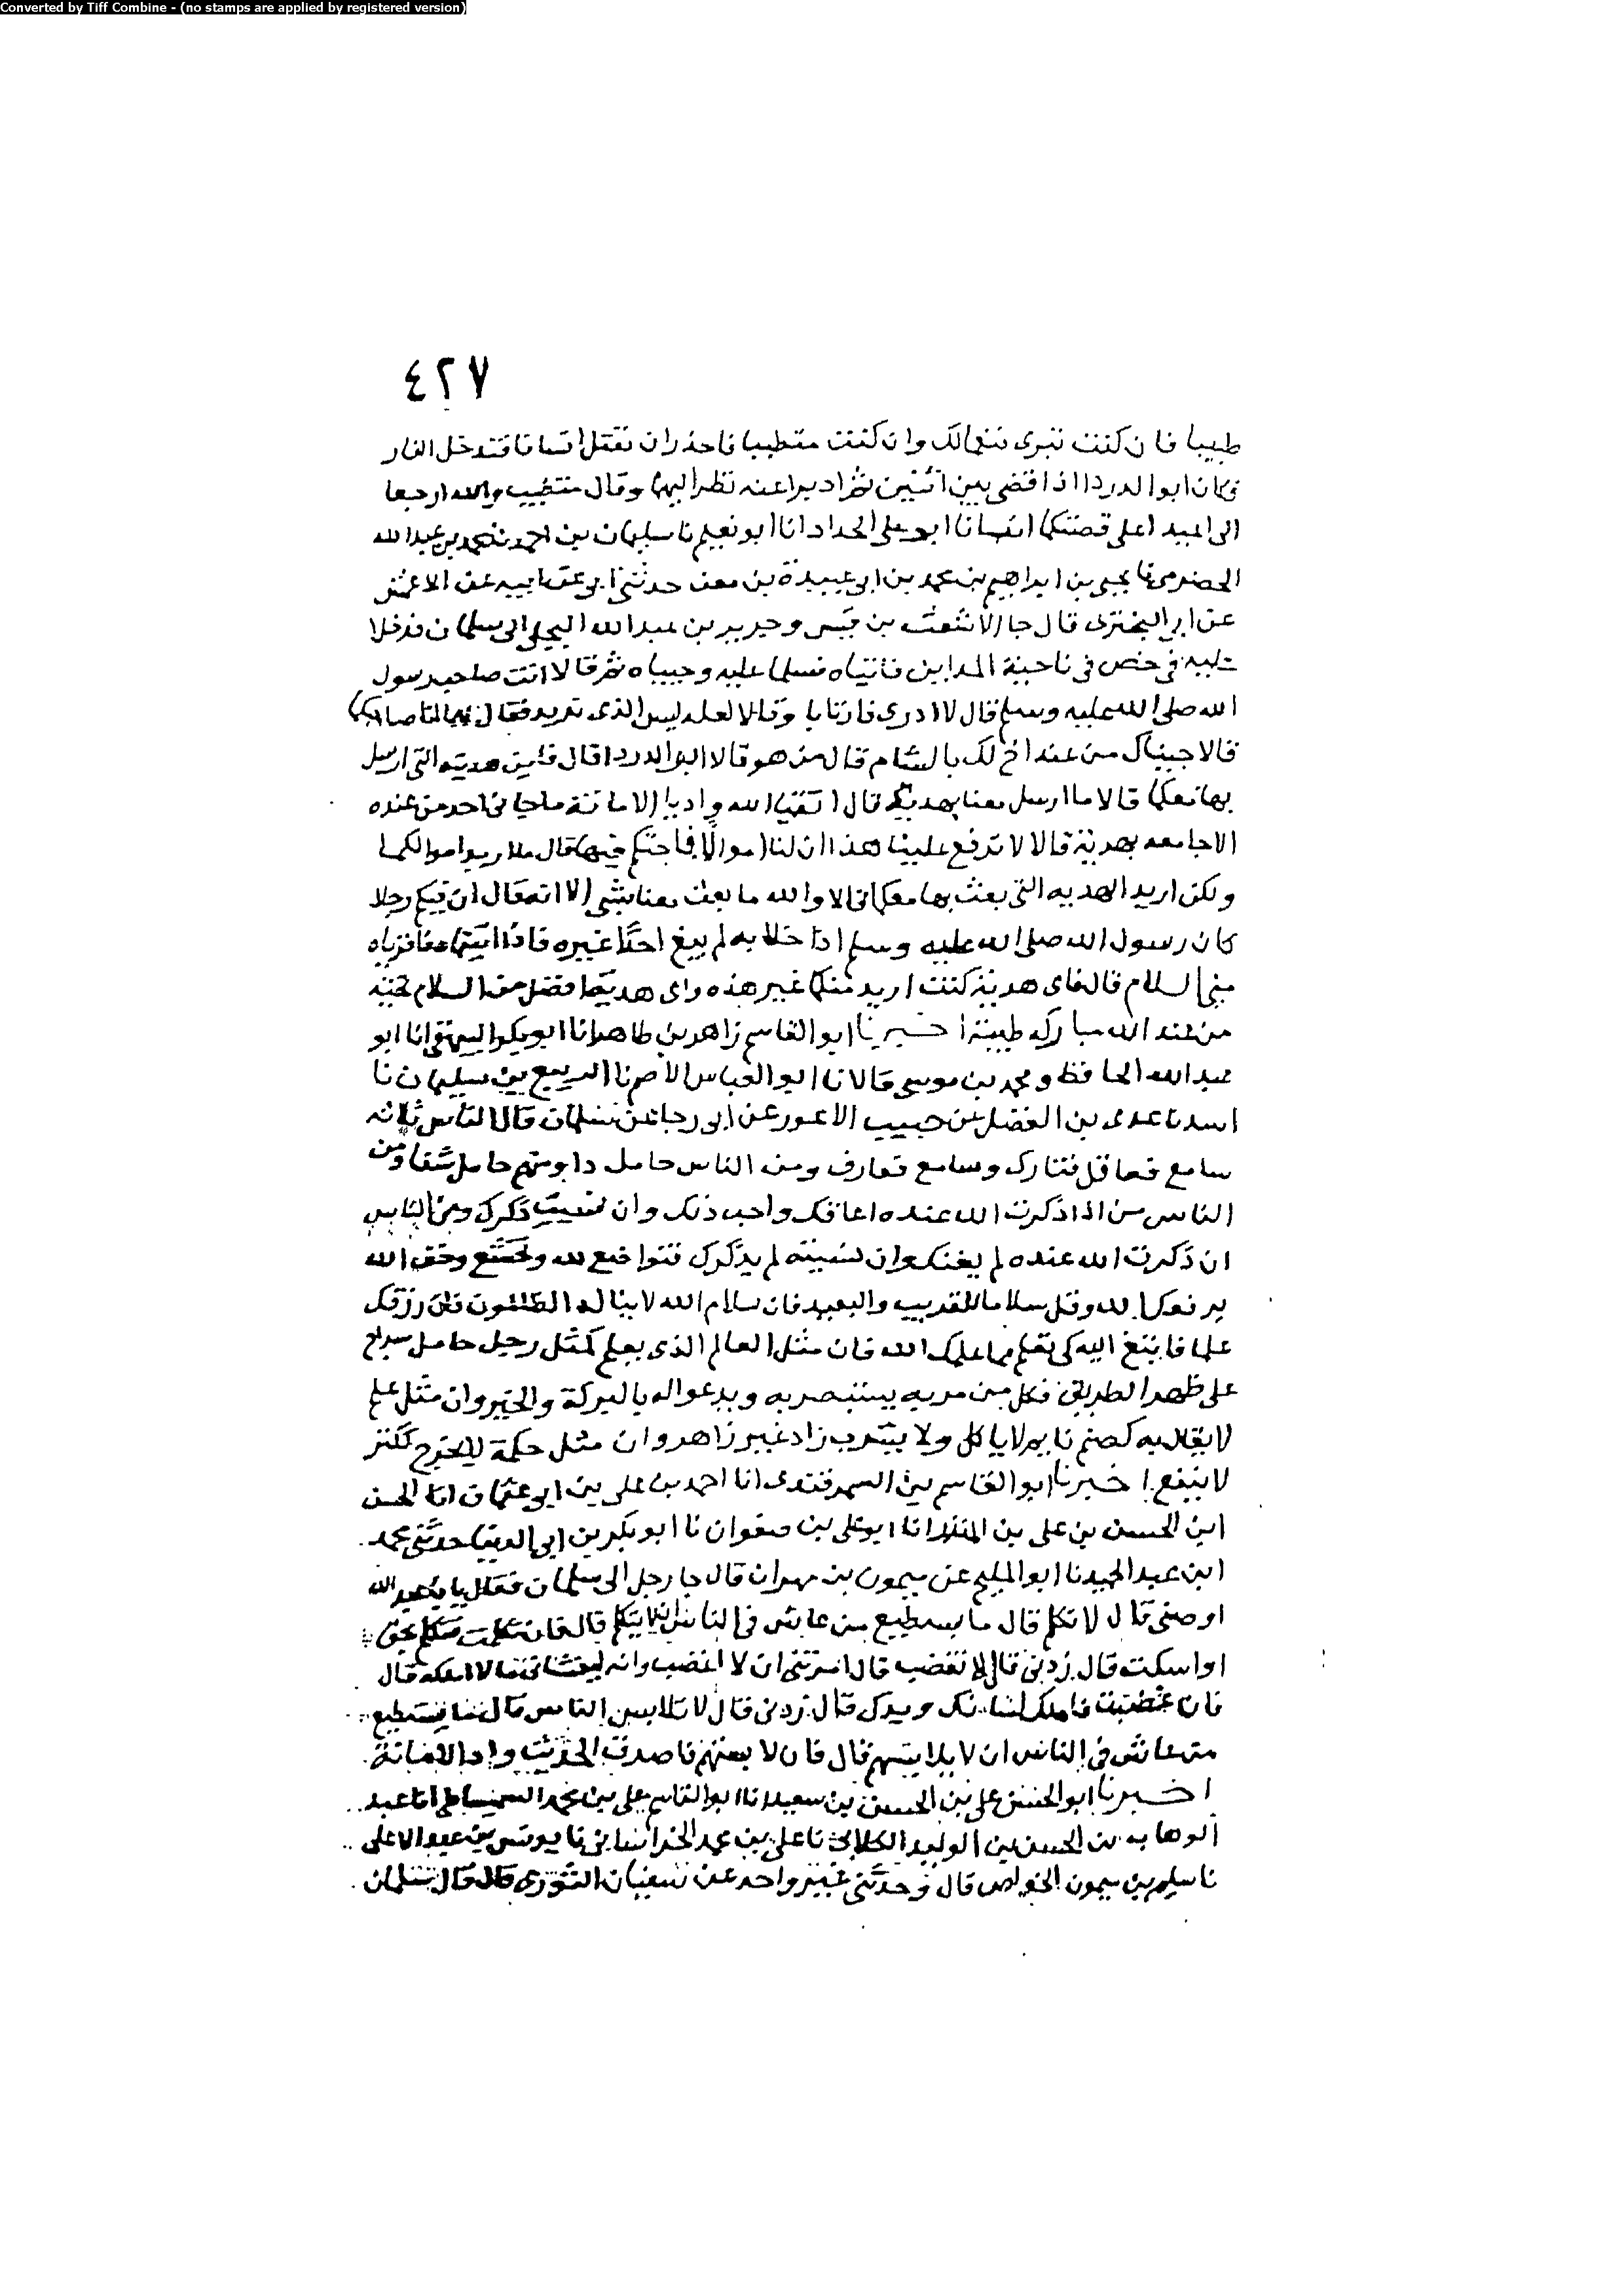 Converted by Tiff Combine - (no stamps are applied by registered version)
٤٢٧
طبيبا فان كنت تبرى فنعمالك وان كنت متطببا فاحذر ان تقتل انسانا فتدخل النار
فكان ابو الدردا اذا قضى بين اثنين ثم ادبرا عنه نظر اليهما وقال متطبب والله ارجعا
الى اعيدا على قصتكما انبانا ابو على الحداد انا ابو نعيم نا سليمان بن احمد نا محمد بن عبد الله
الحضرمى نا يحيى بن ابراهيم بن محمد بن ابى عبيدة بن معن حدثنى ابى عن ابيه عن الاعمش
عن ابى البخترى قال جا الاشعث بن قيس وجرير بن عبد الله البجلى الى سلمان فدخلا
عليه فى خص فى ناحية المداين فاتياه فسلما عليه وحيياه ثم قالا انت صاحب رسول
الله صلى الله عليه وسلم قال لا ادرى فارتابا وقالا لعله ليس الذى نريد فقال لهما انا صاحبكما
قالا جيناك من عند اخ لك بالشام قال من هو قالا ابو الدردا قال فاين هديته التى ارسل
بها معكما قالا ما ارسل معنا بهدية قال اتقيا الله واديا الامانة ما جانى احد من عنده
الا جا معه بهدية قالا لا ترفع علينا هذا ان لنا اموالا فاحتكم فيها قال ما اريد اموالكما
ولكن اريد الهديه التى بعث بها معكما قالا والله ما بعث معنا بشى الا انه قال ان فيكم رجلا
كان رسول الله صلى الله عليه وسلم اذا خلا به لم يبغ احدا غيره فاذا اتيتماه فاقرياه
منى السلام قال فاى هدية كنت اريد منكما غير هذه واى هدية افضل من السلام تحية
من عند الله مباركه طيبة اخبرنا ابو القاسم زاهر بن طاهر انا ابو بكر البيهقى انا ابو
عبد الله الحافظ ومحمد بن موسى قالا نا ابو العباس الاصم نا الربيع بن سليمان نا
اسد نا عدى بن الفضل عن حبيب الاعور عن ابى رجا عن سلمان قال الناس ثلاثه
سامع فعاقل فتارك وسامع فعارف ومن الناس حامل دا ومنهم حامل شفا ومن
الناس من اذا ذكرت الله عنده اعانك واحب ذلك وان نسيت ذكرك ومن الناس
ان ذكرت الله عنده لم يعنك وان نسيته لم يذكرك فتواضع لله وتخشع وخف الله
يرفعك الله وقل سلاما للقريب والبعيد فان سلام الله لا يناله الظالمون فان رزقك
علما فابتغ اليه كى تعلم مما علمك الله فان مثل العالم الذى يعلم كمثل رجل حامل سراج
على ظهر الطريق فكل من مر به يستبصر به ويدعو اله بالبركة والخير وان مثل علم
لا يقال به كصنم نايم لا ياكل ولا يشرب زاد غيره زاهر وان مثل حكمة لا تخرج ككنز
لا ينفع اخبرنا ابو القاسم بن السمرقندى انا احمد بن على بن ابى عثمان انا الحسن
ابن الحسن بن على بن المنذر انا ابو على بن صفوان نا ابو بكر بن ابى الدنيا حدثنى محمد
ابن عبد المجيد نا ابو المليح عن ميمون بن مهران قال جا رجل الى سلمان فقال يا با عبد الله
اوصنى قال لا تكلم قال ما يستطيع من عاش فى الناس ان لا يتكلم قال فان تكلمت فتكلم بحق
او اسكت قال زدنى قال لا تغضب قال امرتنى ان لا اغضب وانه ليغشانى ما لا املكه قال
فان غضبت فاملك لسانك ويدك قال زدنى قال لا تلابس الناس قال ما يستطيع
من عاش فى الناس ان لا يلابسهم قال فان لابستهم فاصدق الحديث واد الامانة
اخبرنا ابو الحسن على بن الحسن بن سعيد انا ابو القاسم على بن محمد السميساطى انا عبد
الوهاب بن الحسن بن الوليد الكلابى نا على بن محمد الخراسانى نا يونس بن عبد الاعلى
نا سليم بن ميمون الخواص قال وحدثنى غير واحد عن سفيان الثورى قال قال سلمان